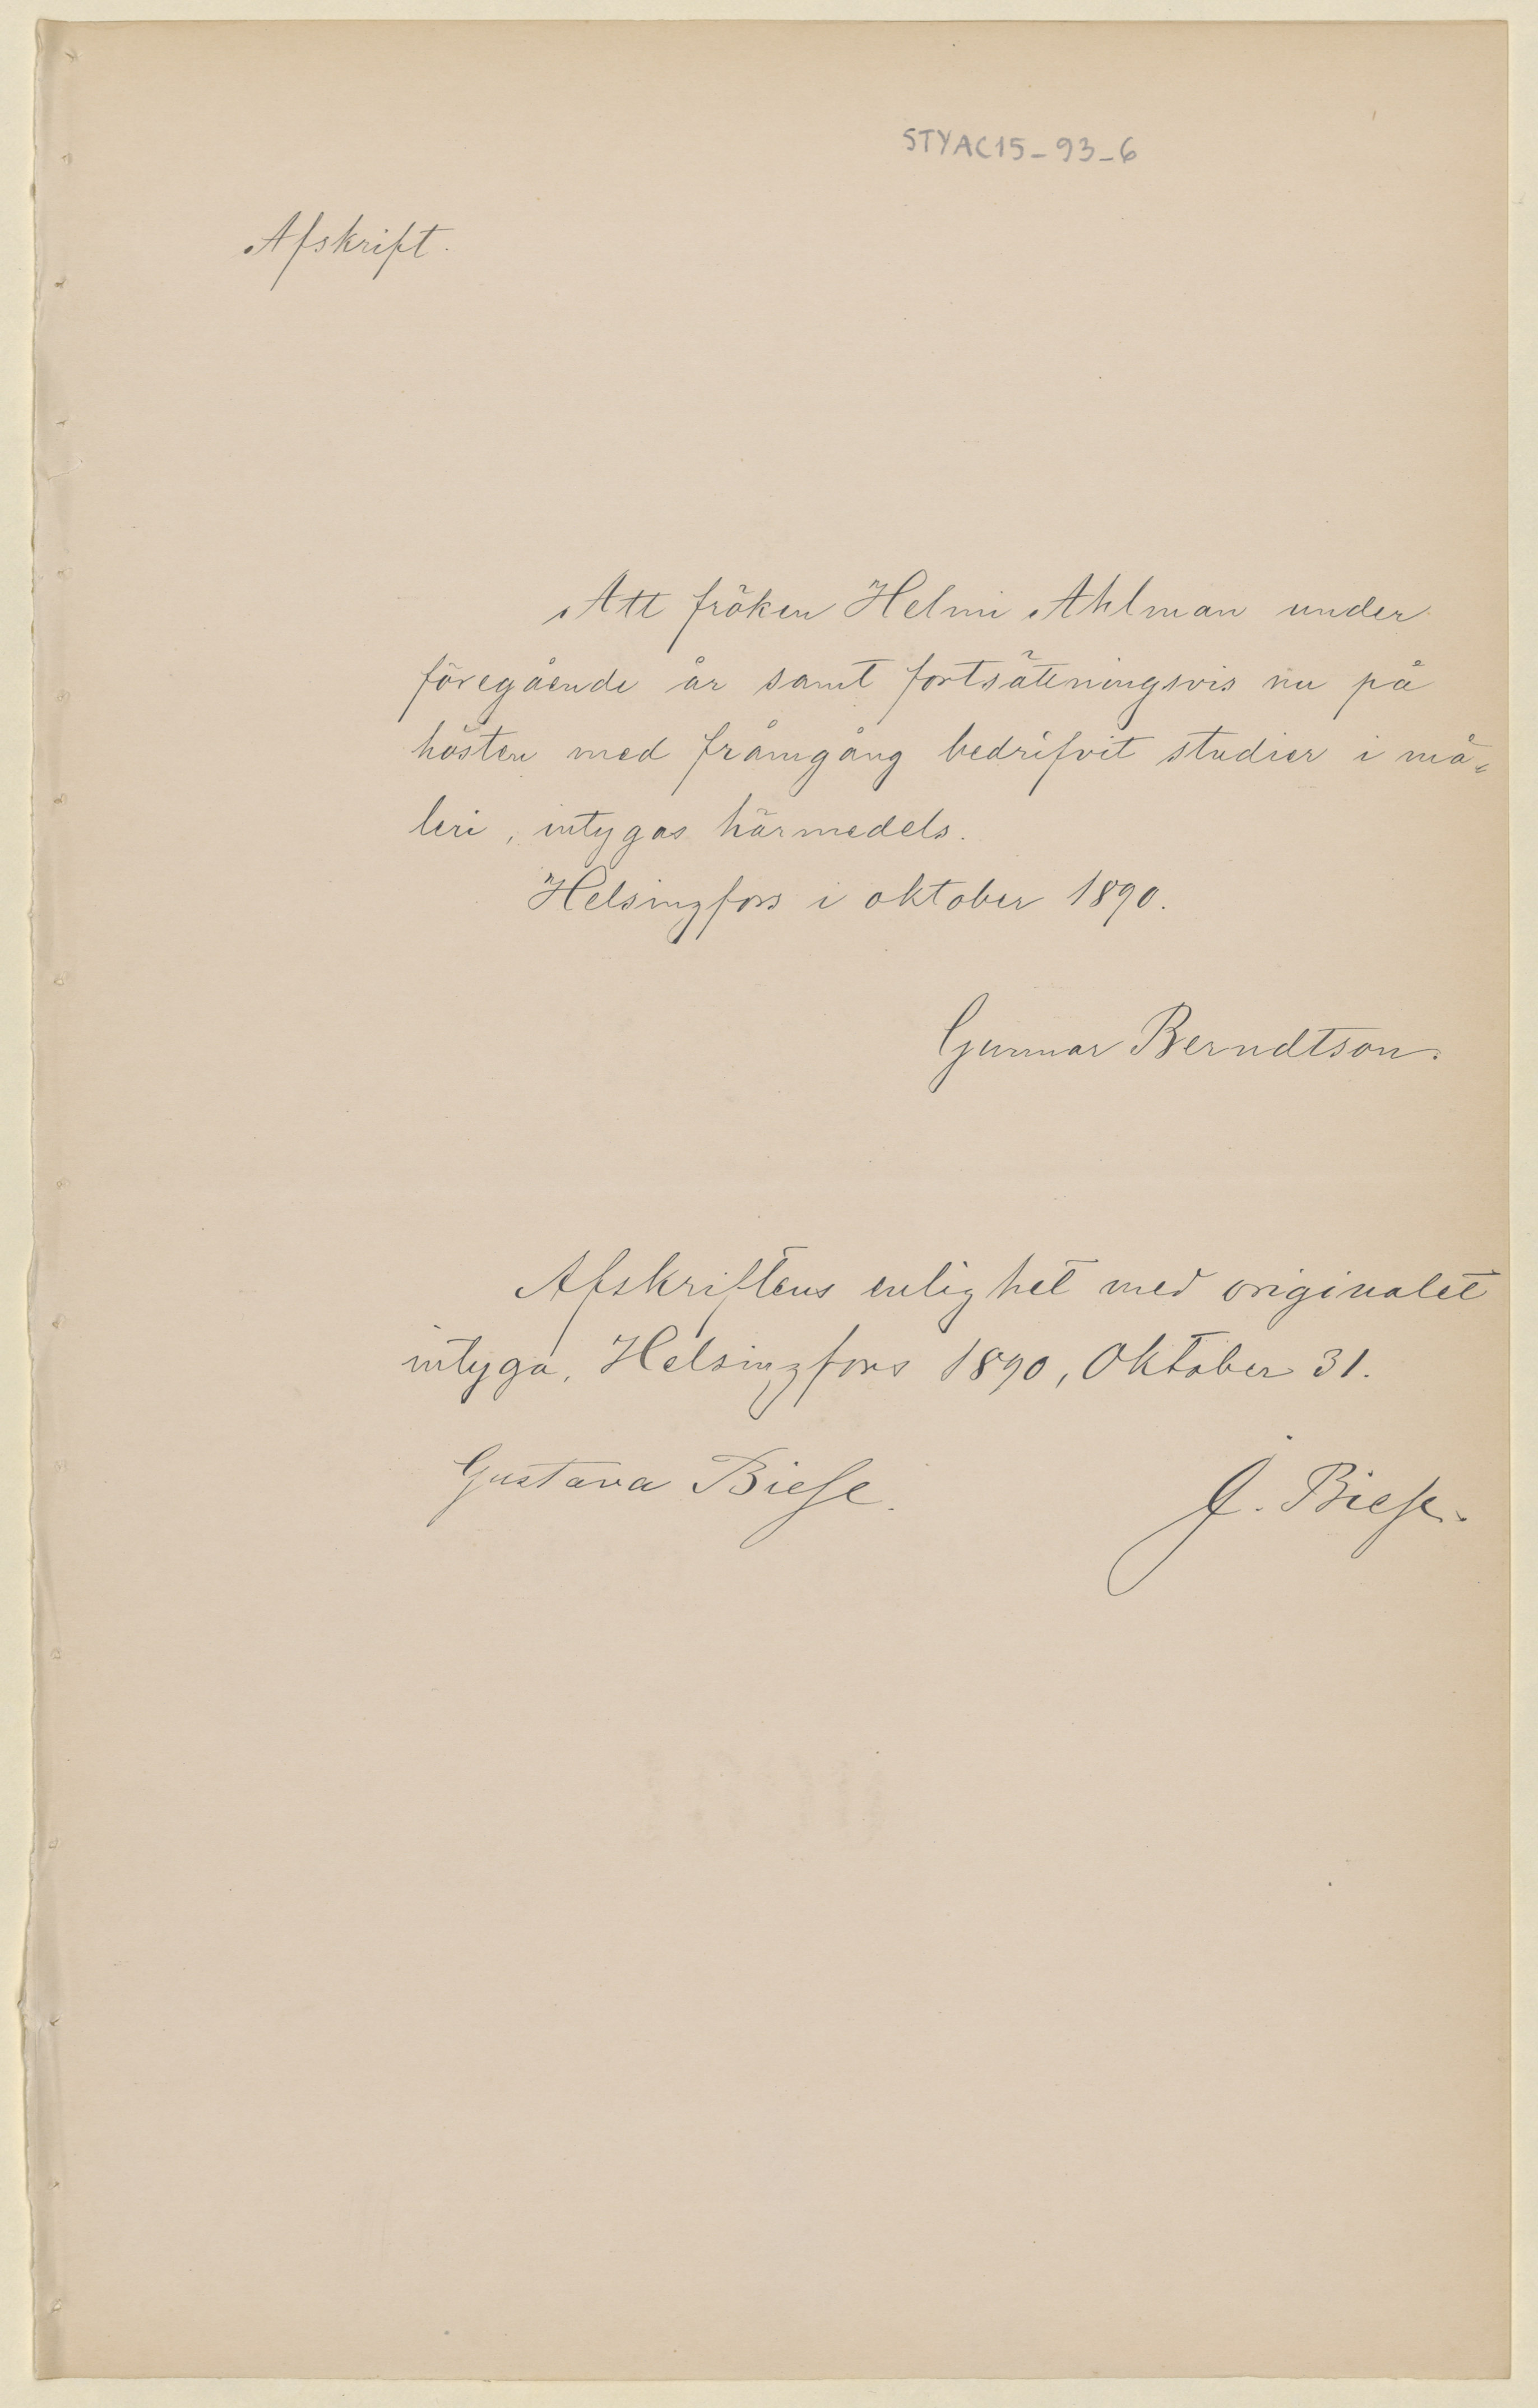 STYAC15-93-6
Afskrift.
Att fröken Helmi Ahlman under
föregående år samt fortsättningsvis nu på
hösten med framgång bedrifvit studier i må-
leri, intygas härmedels.
Helsingfors i oktober 1890.
Gunnar Berndtson.
Afskriftens enlighet med originalet
intyga, Helsingfors 1890, Oktober 31.
Gustava Biese.
J. Biese.